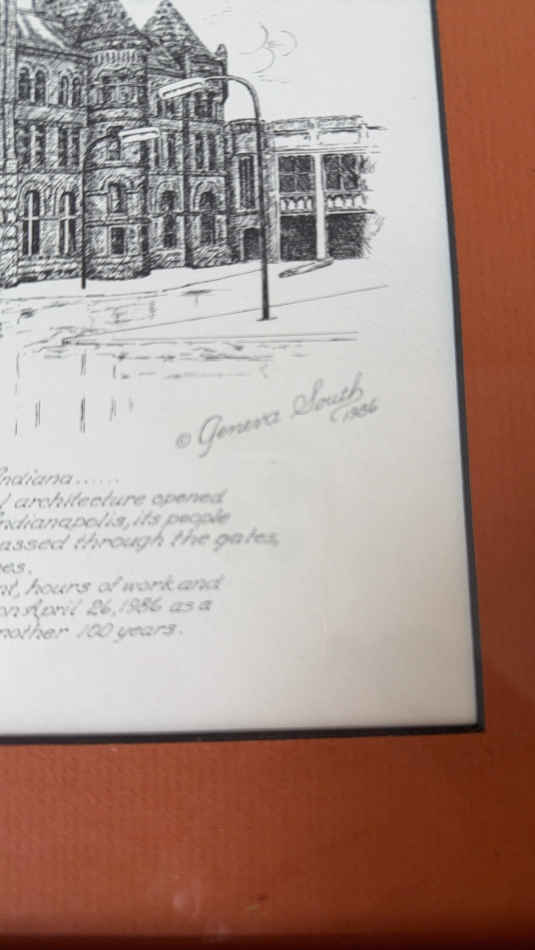 © Geneva South
1986
Indiana.....
l architecture opened
Indianapolis, its people
assed through the gates,
es.
nt, hours of work and
on April 26, 1986 as a
nother 100 years.